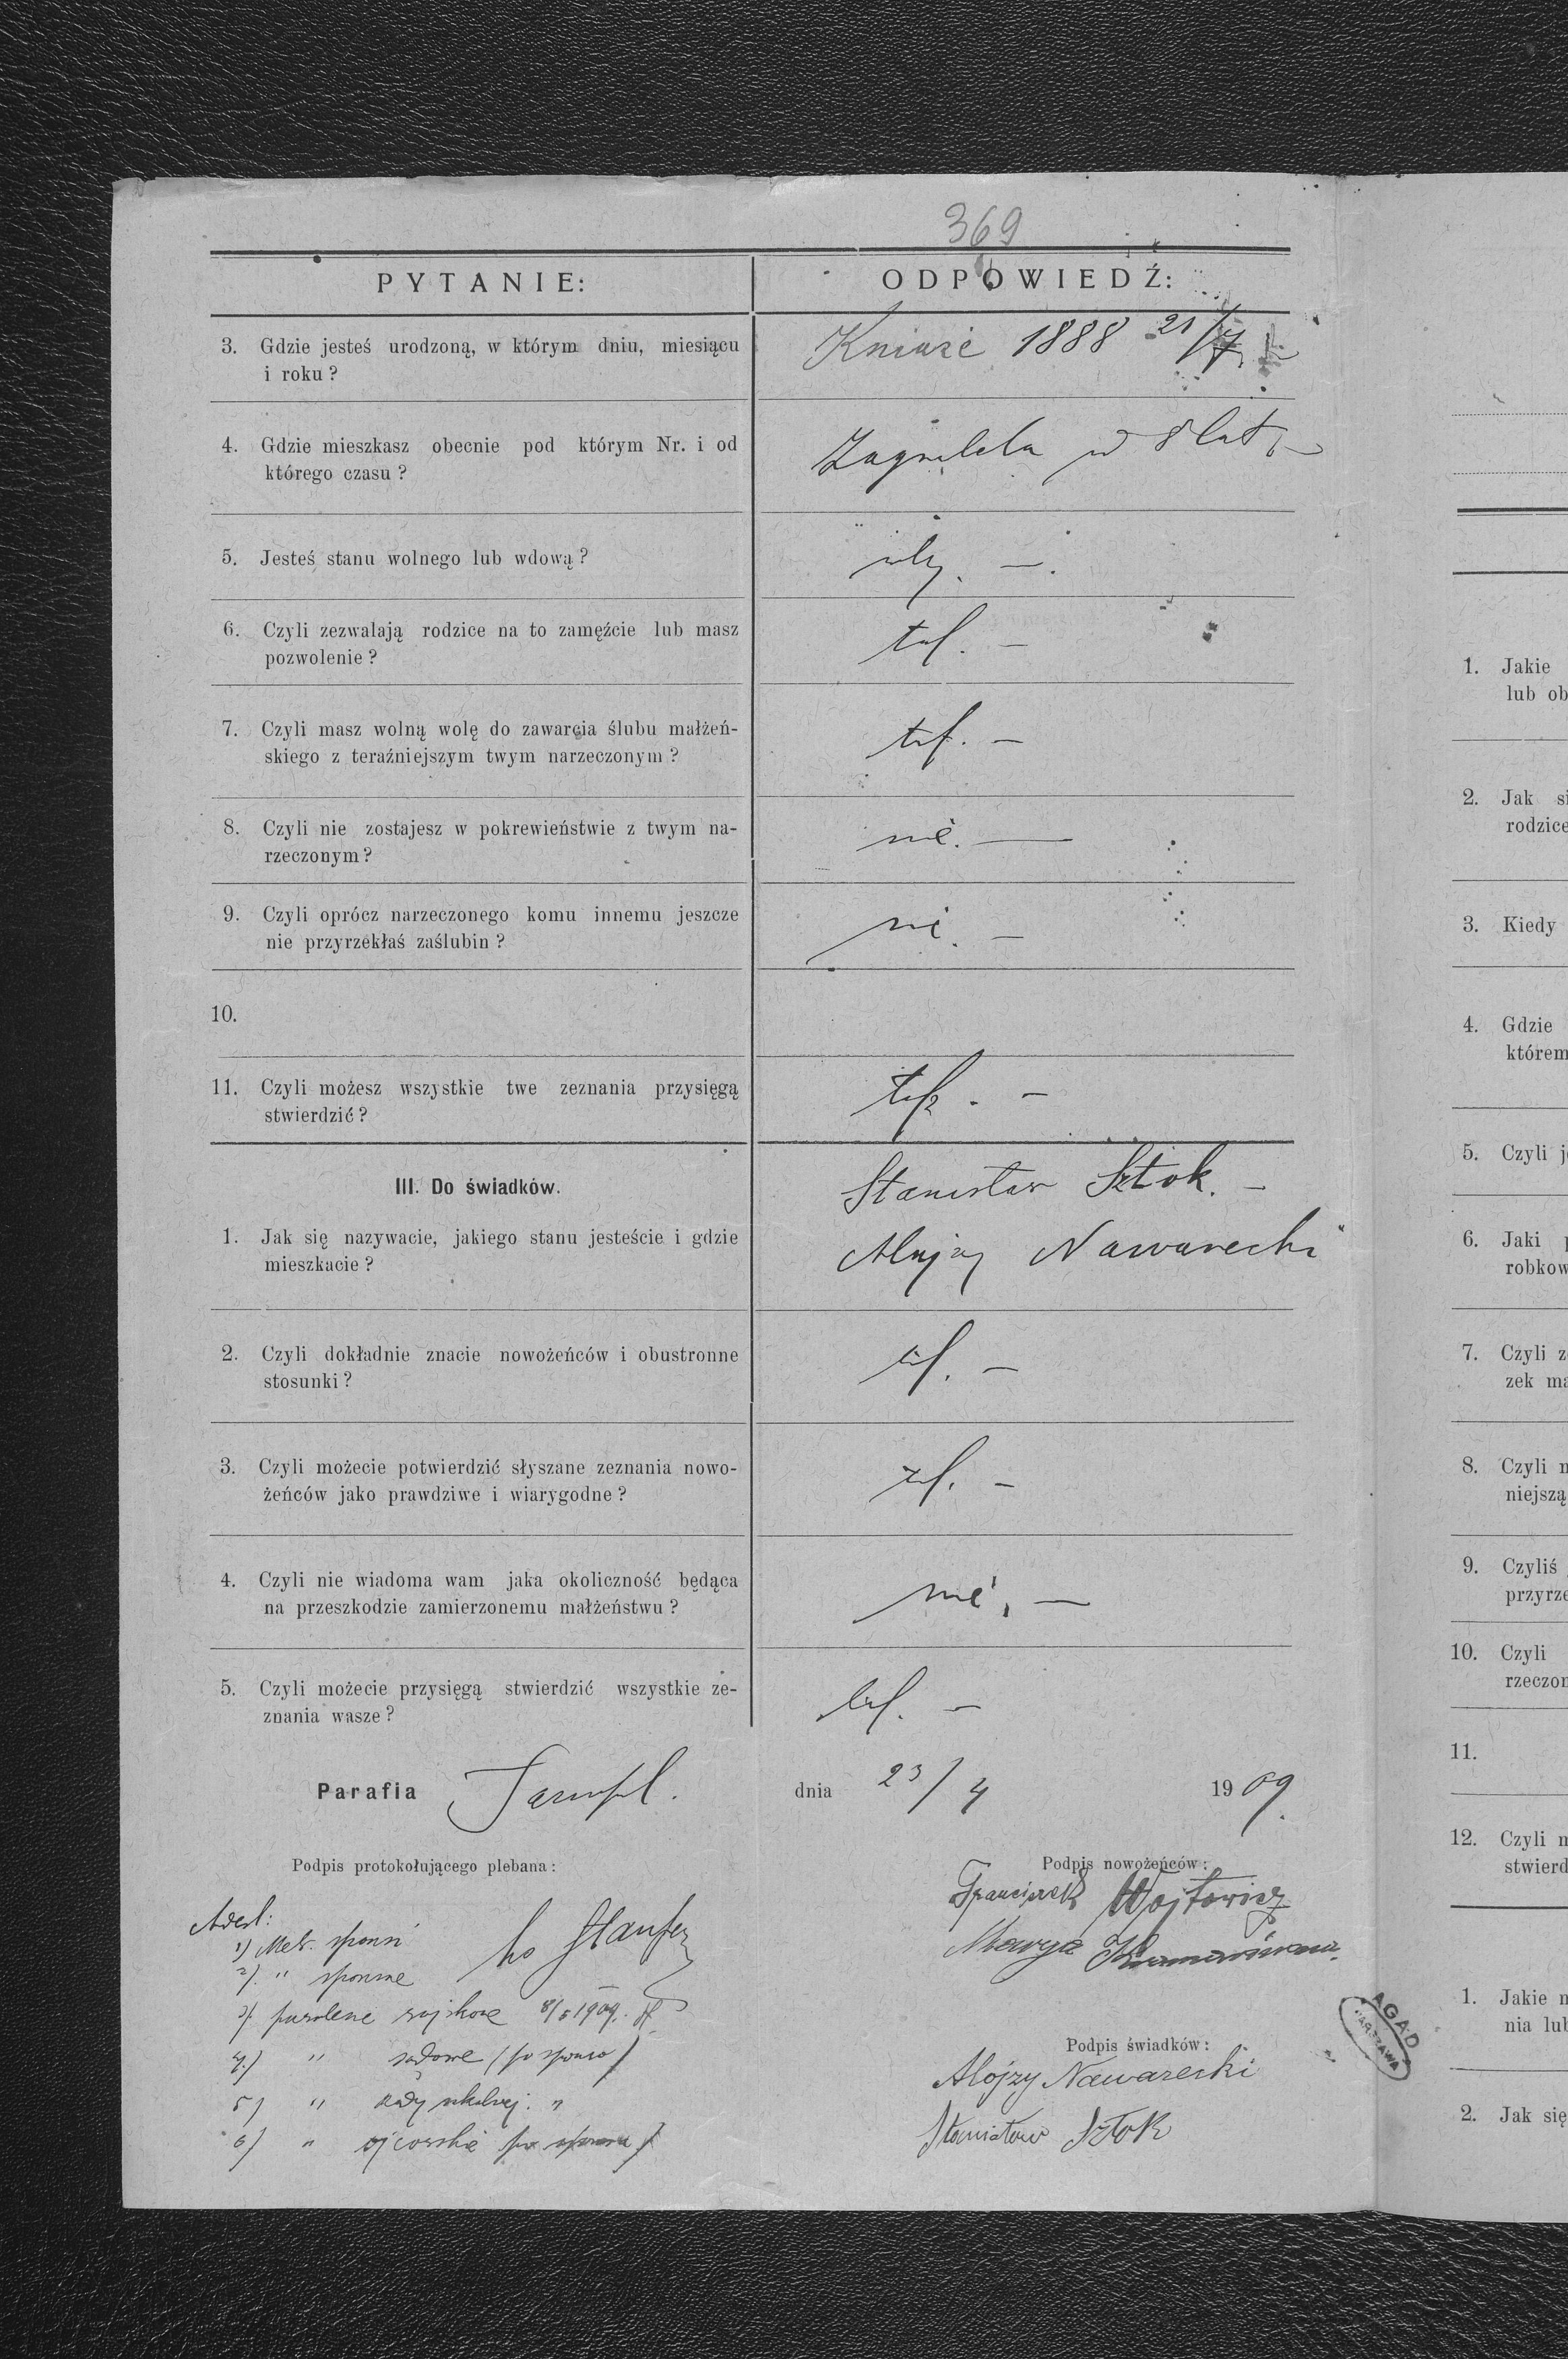 369
PYTANIE:
ODPOWIEDŹ:
3. Gdzie jesteś urodzoną, w którym dniu, miesiącu
i roku?
Kniaże 1888 21/7
4. Gdzie mieszkasz obecnie pod którym Nr. i od
którego czasu?
8 lat
5. Jesteś stanu wolnego lub wdową?
6. Czyli zezwalają rodzice na to zamęźcie lub masz
pozwolenie?
tak. —
7. Czyli masz wolną wolę do zawarcia ślubu małżeń-
skiego z teraźniejszym twym narzeczonym?
tak. —
8. Czyli nie zostajesz w pokrewieństwie z twym na-
rzeczonym?
nie. —
9. Czyli oprócz narzeczonego komu innemu jeszcze
nie przyrzekłaś zaślubin?
nie. —
10.
11. Czyli możesz wszystkie twe zeznania przysięgą
stwierdzić?
tak. —
III. Do świadków.
Stanisław Sztok. —
1. Jak się nazywacie, jakiego stanu jesteście i gdzie
mieszkacie?
Alojzy Nawarecki
2. Czyli dokładnie znacie nowożeńców i obustronne
stosunki?
tak. —
3. Czyli możecie potwierdzić słyszane zeznania nowo-
żeńców jako prawdziwe i wiarygodne?
tak. —
4. Czyli nie wiadoma wam jaka okoliczność będąca
na przeszkodzie zamierzonemu małżeństwu?
nie, —
5. Czyli możecie przysięgą stwierdzić wszystkie ze-
znania wasze?
tak. —
Parafia Tarnopol. dnia 23/4 1909.
Podpis protokołującego plebana:
Podpis nowożeńców:
Franciszek Wojtowicz
Marya
1) Metr. sponsi
2) " sponsae
3) 8/5 1909.
4) " sądowe
5) "
6) " ojcowskie
Podpis świadków:
Alojzy Nawarecki
Stanisław Sztok
AGAD
WARSZAWA
1. Jakie
lub ob
2. Jak si
rodzice
3. Kiedy
4. Gdzie
którem
5. Czyli j
6. Jaki p
robkow
7. Czyli z
zek ma
8. Czyli n
niejszą
9. Czyliś
przyrze
10. Czyli
rzeczon
11.
12. Czyli m
stwierd
1. Jakie n
nia lub
2. Jak się